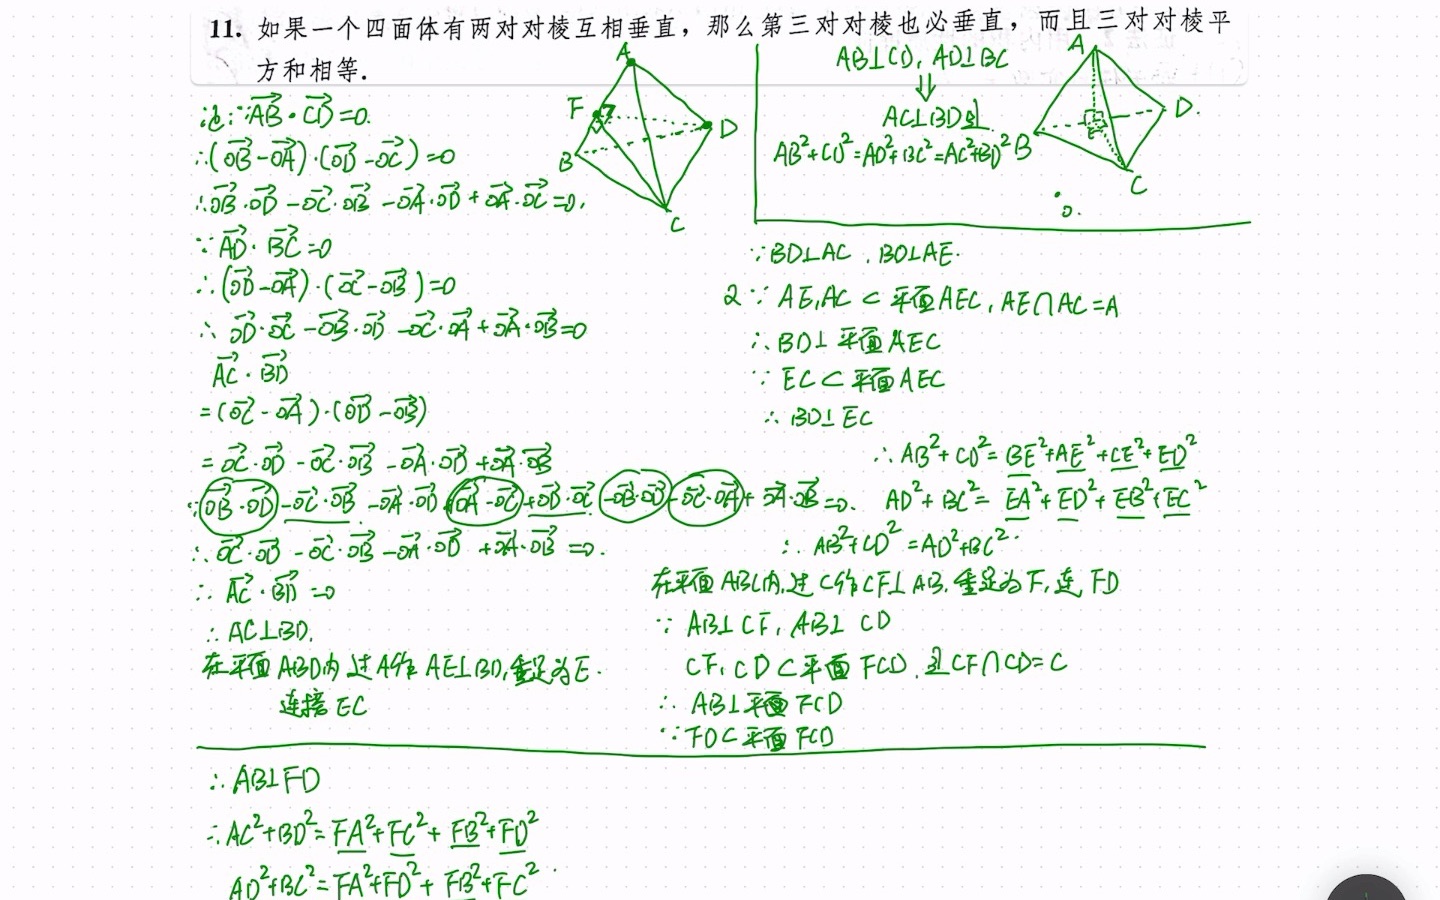 11. 如果一个四面体有两对对棱互相垂直，那么第三对对棱也必垂直，而且三对对棱平
方和相等.
AB⊥CD, AD⊥BC
⇓
AC⊥BD且
AB²+CD²=AD²+BC²=AC²+BD²
A
F
B
D
C
A
B
D.
E
C
O.
∵AB·CD=0.
∴(OB-OA)·(OD-OC)=0
∴OB·OD-OC·OB-OA·OD+OA·OC=0,
∵AD·BC=0
∴(OD-OA)·(OC-OB)=0
∴OD·OC-OB·OD-OC·OA+OA·OB=0
AC·BD
=(OC-OA)·(OD-OB)
=OC·OD-OC·OB-OA·OD+OA·OB
∵OB·OD-OC·OB-OA·OD+OA·OC+OD·OC-OB·OD-OC·OA+OA·OB=0.
∴OC·OD-OC·OB-OA·OD+OA·OB=0.
∴AC·BD=0
∴AC⊥BD.
在平面ABD内过A作AE⊥BD,垂足为E.
连接EC
∵BD⊥AC, BD⊥AE.
又∵AE,AC⊂平面AEC, AE∩AC=A
∴BD⊥平面AEC
∵EC⊂平面AEC
∴BD⊥EC
∴AB²+CD²=BE²+AE²+CE²+ED²
AD²+BC²=EA²+ED²+EB²+EC²
∴AB²+CD²=AD²+BC².
在平面ABC内,过C作CF⊥AB,垂足为F,连FD
∵AB⊥CF, AB⊥CD
CF,CD⊂平面FCD,且CF∩CD=C
∴AB⊥平面FCD
∵FD⊂平面FCD
∴AB⊥FD
∴AC²+BD²=FA²+FC²+FB²+FD²
AD²+BC²=FA²+FD²+FB²+FC².